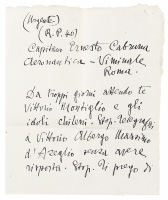 (Urgente)
(R.P. 40)
Capitano Ernesto Cabruna
Aeronautica - Viminale
Roma.
Da troppi giorni attendo te
Vittorio Montiglio e gli
idoli chileni. Stop. Telegrafai
a Vittorio Albergo Massimo
d'Azeglio senza avere
risposta. Stop. Ti prego di